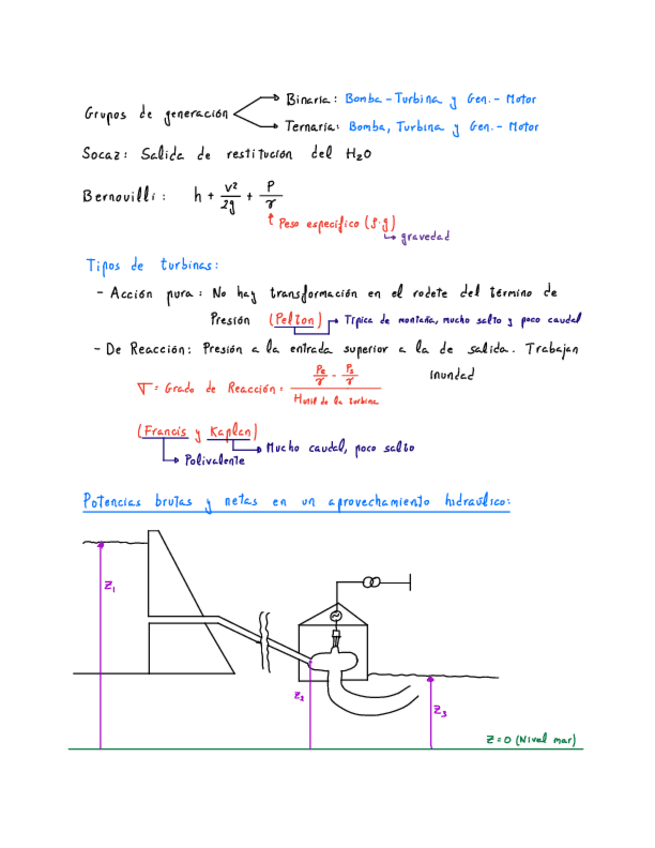 Grupos de generación
Binaria: Bomba - Turbina y Gen. - Motor
Ternaria: Bomba, Turbina y Gen. - Motor
Socaz: Salida de restitución del H₂O
Bernouilli: h + v²/2g + P/γ
Peso específico (ρ·g)
gravedad
Tipos de turbinas:
- Acción pura: No hay transformación en el rodete del término de
Presión (Pelton) Típica de montaña, mucho salto y poco caudal
- De Reacción: Presión a la entrada superior a la de salida. Trabajan
inundad
σ = Grado de Reacción = (Pe/γ - Ps/γ) / Hútil de la turbina
(Francis y Kaplan)
Mucho caudal, poco salto
Polivalente
Potencias brutas y netas en un aprovechamiento hidraúlico:
Z₁
Z₂
Z₃
Z=0 (Nivel mar)